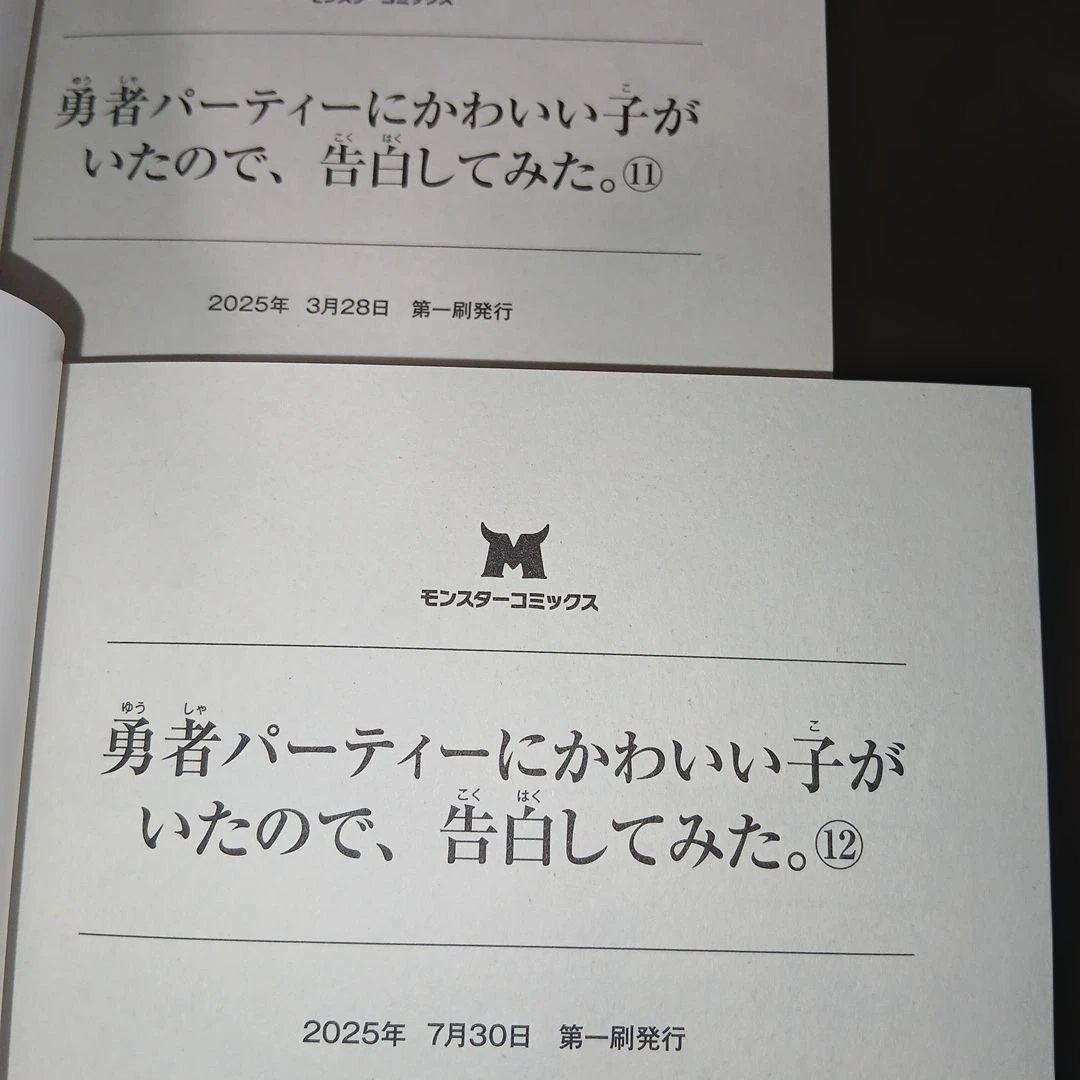 モンスターコミックス
勇者パーティーにかわいい子が
いたので、告白してみた。⑪
2025年 3月28日 第一刷発行
M
モンスターコミックス
ゆう しゃ こ
勇者パーティーにかわいい子が
こく はく
いたので、告白してみた。⑫
2025年 7月30日 第一刷発行